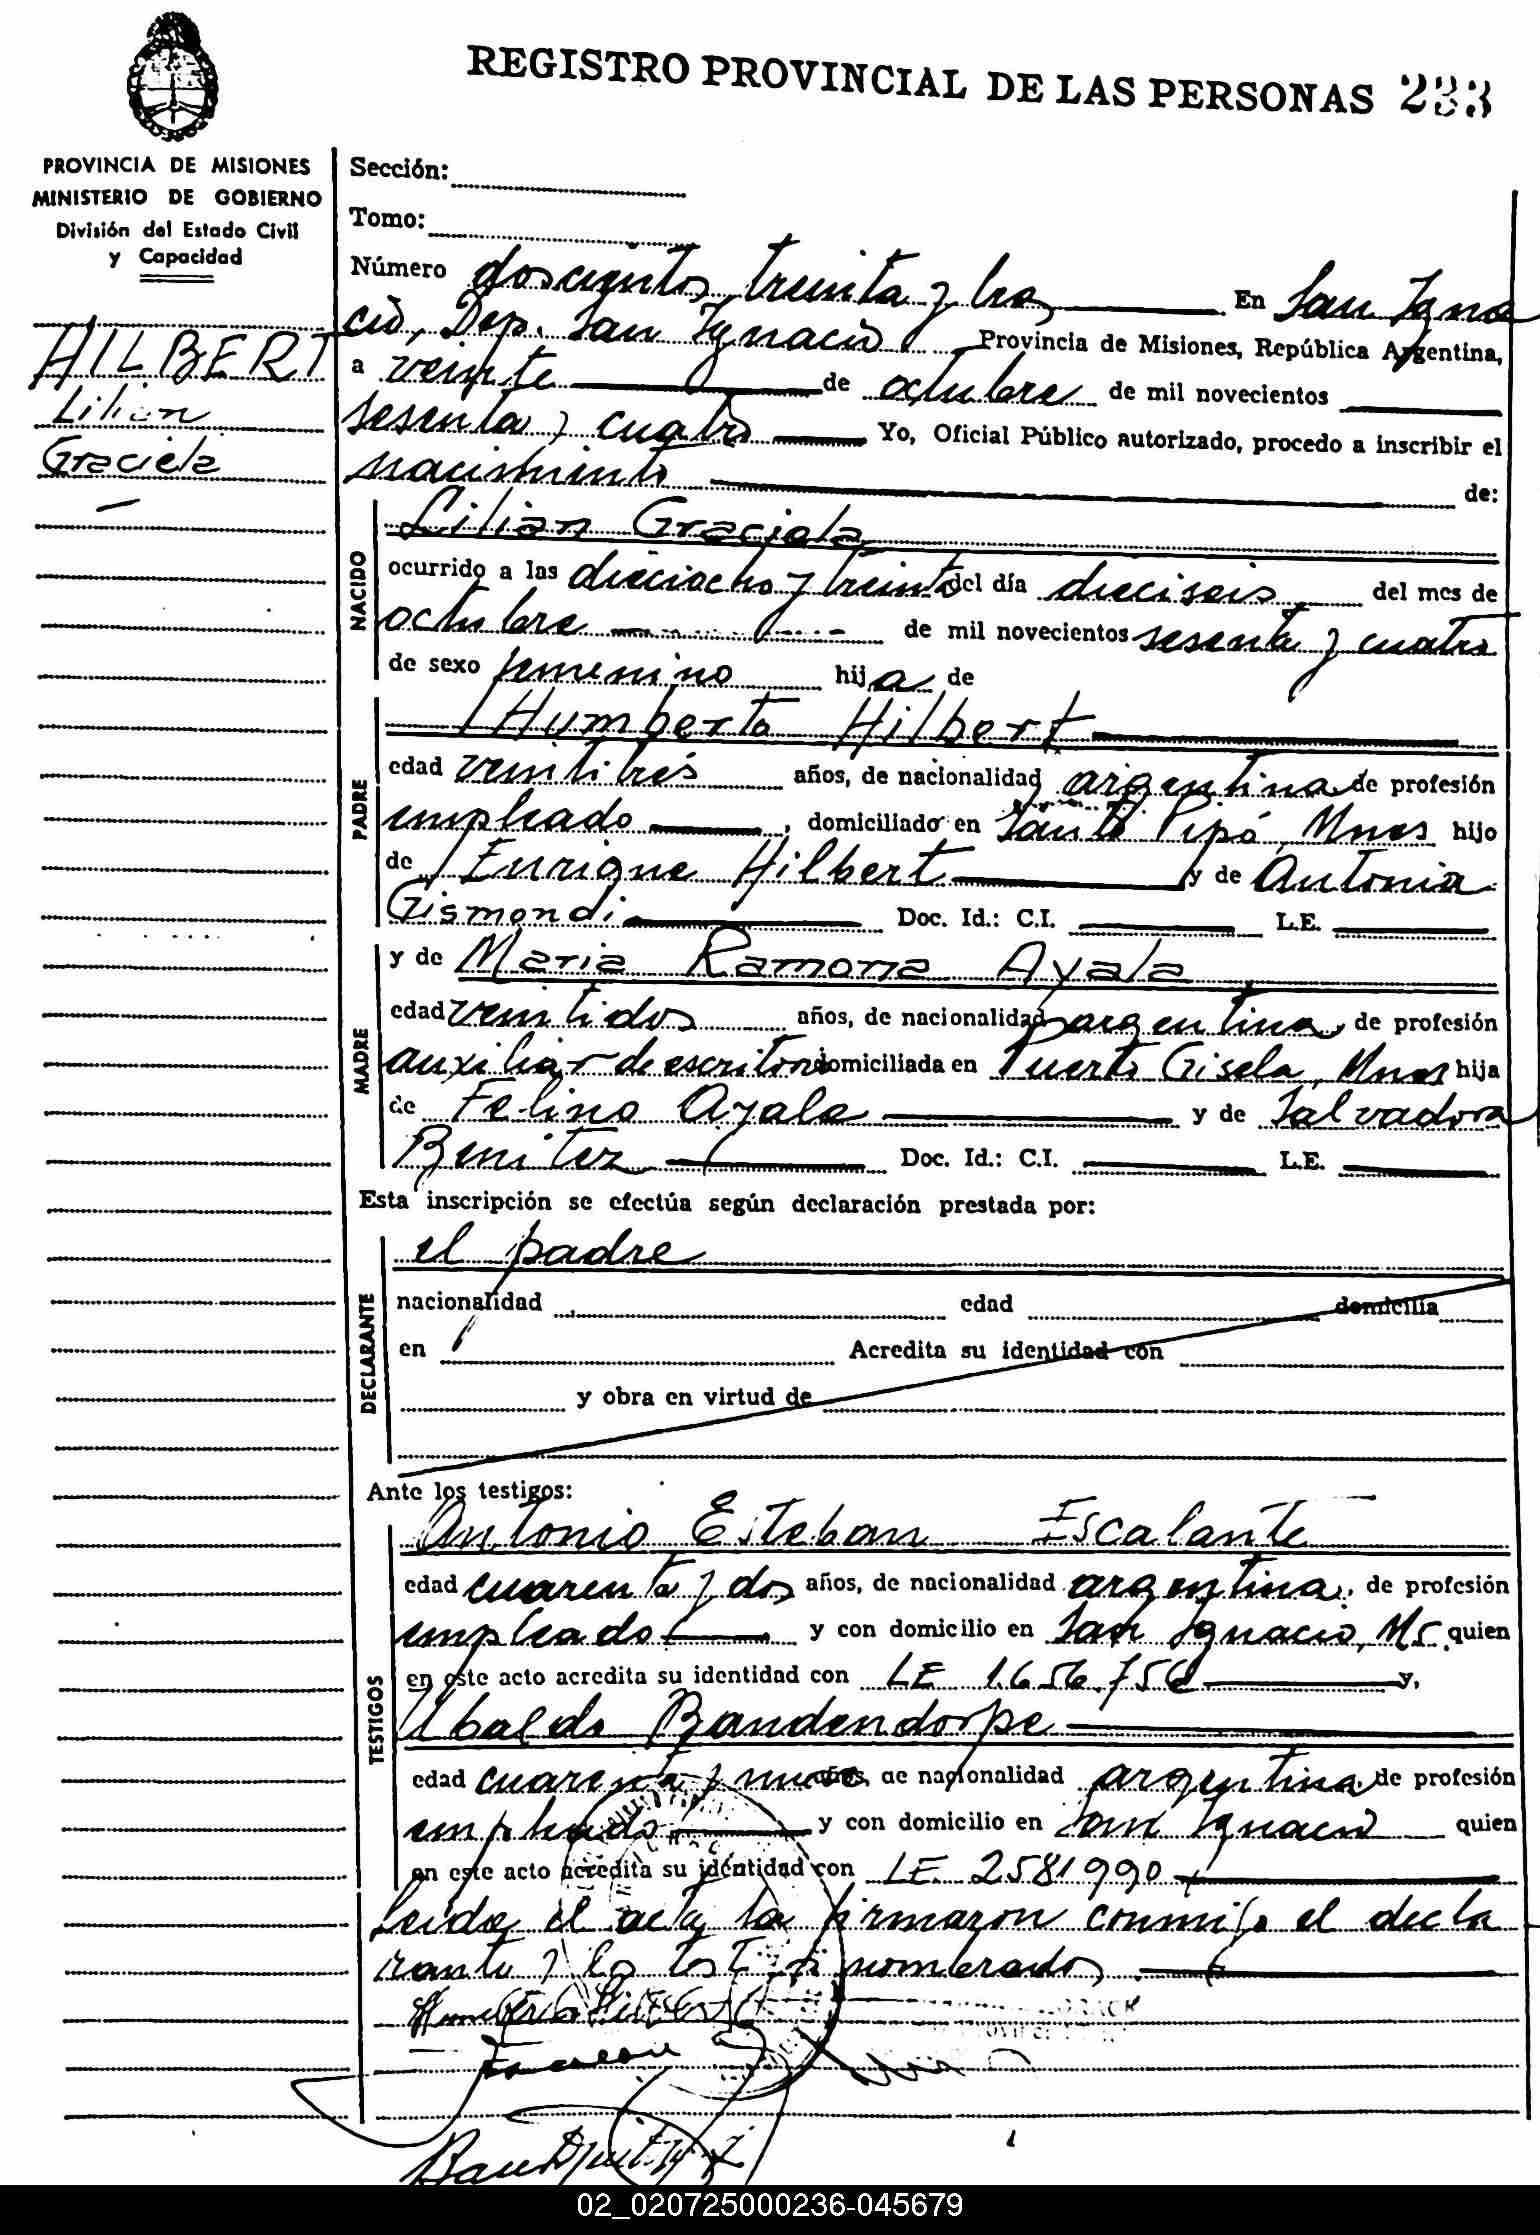 REGISTRO PROVINCIAL DE LAS PERSONAS 233
PROVINCIA DE MISIONES
MINISTERIO DE GOBIERNO
División del Estado Civil
y Capacidad
HILBERT
Lilian
Graciela
Sección:
Tomo:
Número doscientos treinta y tres En San Igna
cio, Dep. San Ignacio Provincia de Misiones, República Argentina,
a veinte de octubre de mil novecientos
sesenta y cuatro Yo, Oficial Público autorizado, procedo a inscribir el
nacimiento de:
NACIDO
Lilian Graciela
ocurrido a las dieciocho y treinta del día dieciseis del mes de
octubre de mil novecientos sesenta y cuatro
de sexo femenino hija de
PADRE
Humberto Hilbert
edad veintitrés años, de nacionalidad argentina de profesión
empleado, domiciliado en Santo Pipó, Mnes hijo
de Enrique Hilbert y de Antonia
Gismondi Doc. Id.: C.I. L.E.
MADRE
y de Maria Ramona Ayala
edad veintidos años, de nacionalidad argentina, de profesión
auxiliar de escritorio domiciliada en Puerto Gisela, Mnes hija
de Felino Ayala y de Salvadora
Benitez Doc. Id.: C.I. L.E.
Esta inscripción se efectúa según declaración prestada por:
DECLARANTE
el padre
nacionalidad edad domicilia
en Acredita su identidad con
y obra en virtud de
Ante los testigos:
TESTIGOS
Antonio Esteban Escalante
edad cuarenta y dos años, de nacionalidad argentina, de profesión
empleado y con domicilio en San Ignacio, Ms. quien
en este acto acredita su identidad con LE 1.656.756 y,
Ubaldo Bandendorpe
edad cuarenta y nueve años, de nacionalidad argentina de profesión
empleado y con domicilio en San Ignacio quien
en este acto acredita su identidad con LE. 2581990
Leida el acta la firmaron conmigo el decla
rante y los testigos nombrados.
Humberto Hilbert
02_020725000236-045679